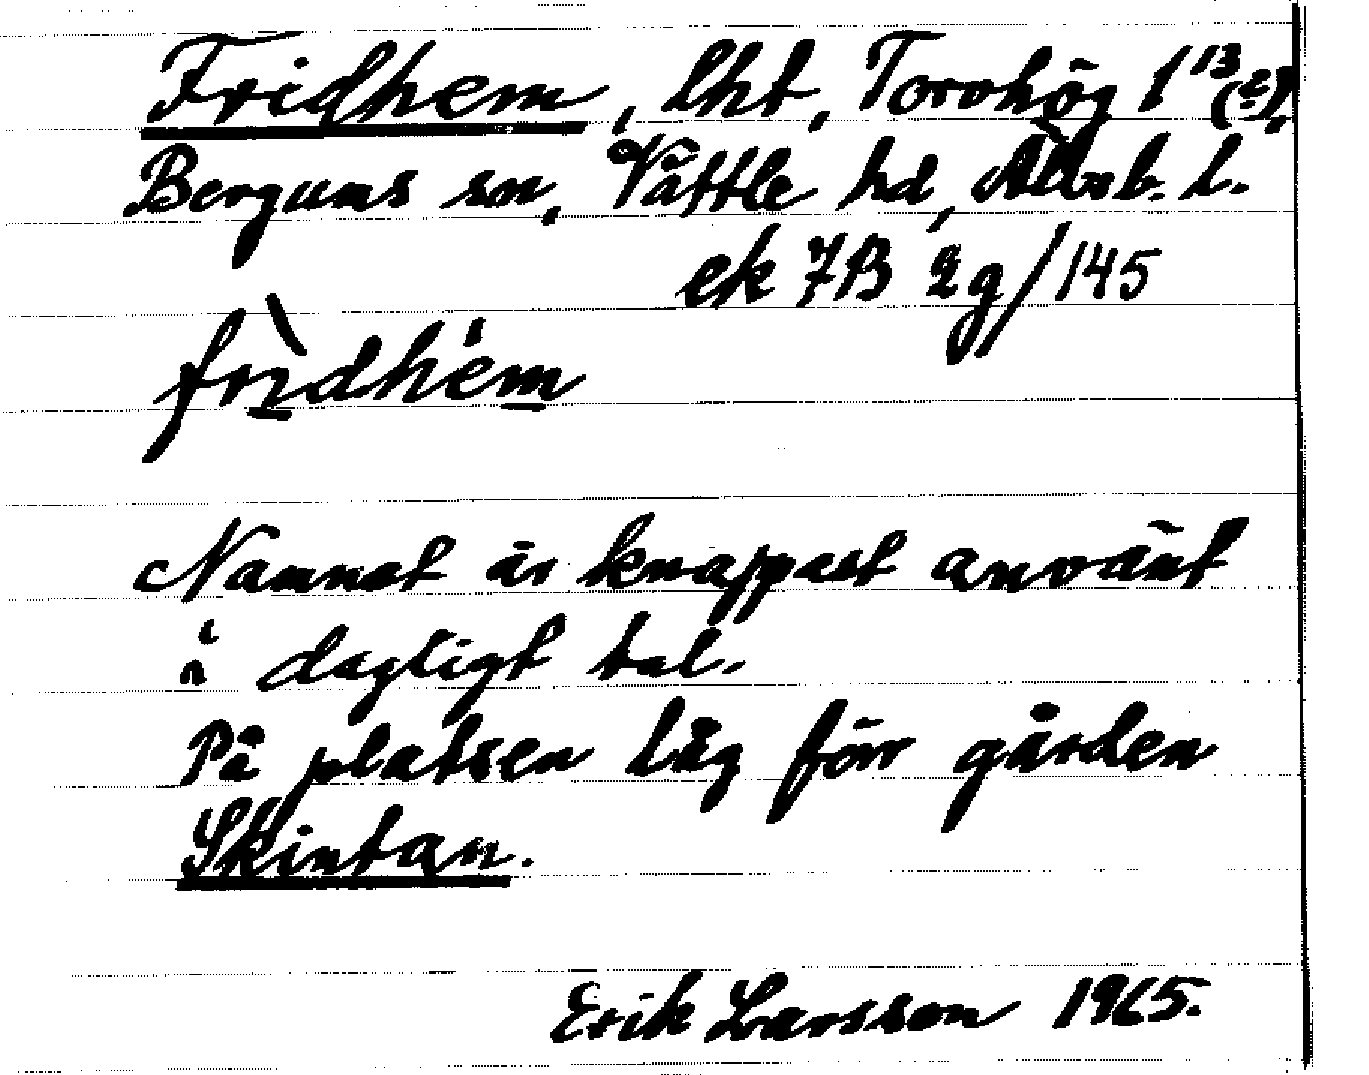 Fridhem, lht, Torvhög 1 13 (2),
Bergums sn, Vättle hd, Älvsb. l.
ek 7B 2g/145
frìdhém
Namnet är knappast använt
i dagligt tal.
På platsen låg förr gården
Skintan.
Erik Larsson 1965.